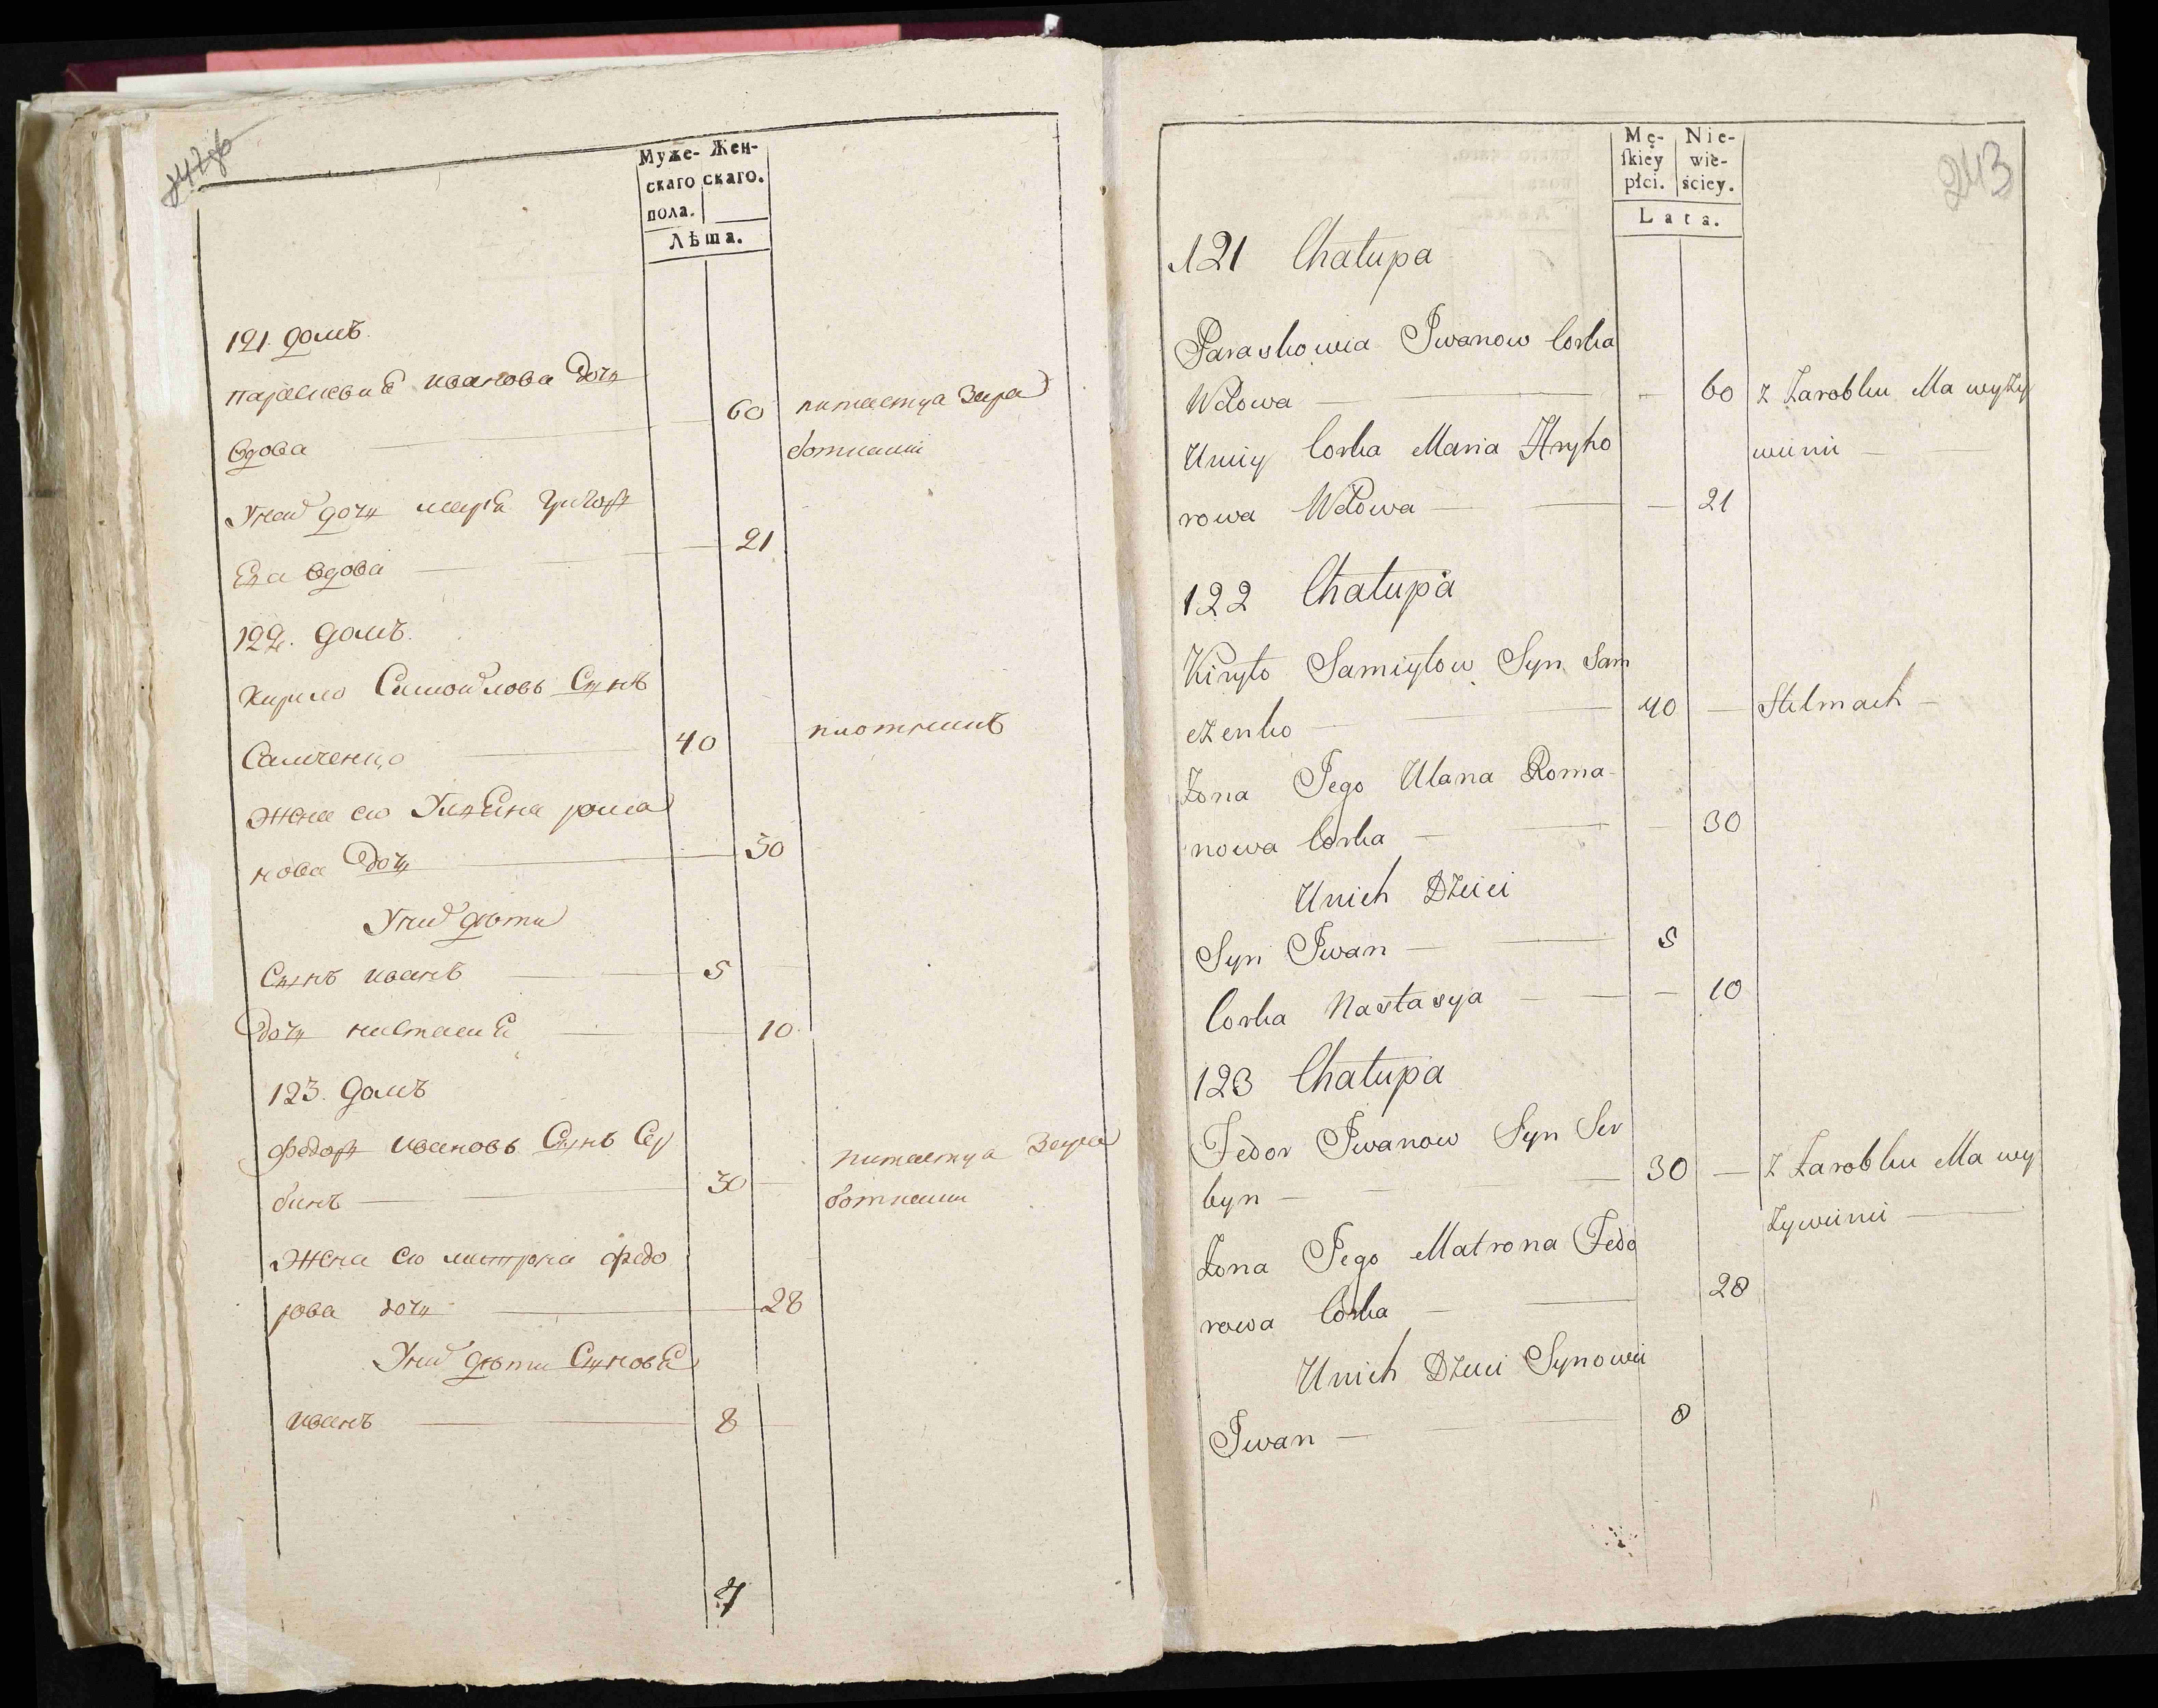 Муже-
скаго
пола.
Жен-
скаго.
Лѣта.
121. домъ.
параскевиѣ иванова дочь
вдова 60 питается зара
ботками
Уней дочь марѣ григорь
ева вдова 21
122. домъ.
кирило Самойловъ Сынъ
Самченко 40 плотникъ
жена его Ульяна рома
нова дочь 30
Уних дѣти
Сынъ иванъ 5
дочь настасиѣ 10
123. домъ
федоръ ивановъ Сынъ Сер
бинъ 30 питается зара
ботками
жена его матрона федо
рова дочь 28
Уних дѣти Сыновѣ
иванъ 8
Mę-
ſkiey
płci.
Nie-
wie-
ściey.
Lata.
243
121 Chałupa
Paraskowia Iwanow Corka
Wdowa — 60 z Zarobku Ma wyży
wieni
Uniey Corka Maria Hryho
rowa Wdowa — 21
122 Chałupa
Kiryło Samiyłow Syn Sam
czenko 40 — Stelmach
Zona Jego Ulana Roma-
nowa Corka — 30
Unich Dzieci
Syn Iwan 5
Corka Nastasya — 10
123 Chałupa
Fedor Iwanow Syn Ser
byn 30 — z Zarobku Ma wy
żywieni
Zona Jego Matrona Fedo
rowa Corka 28
Unich Dzieci Synowie
Iwan 8